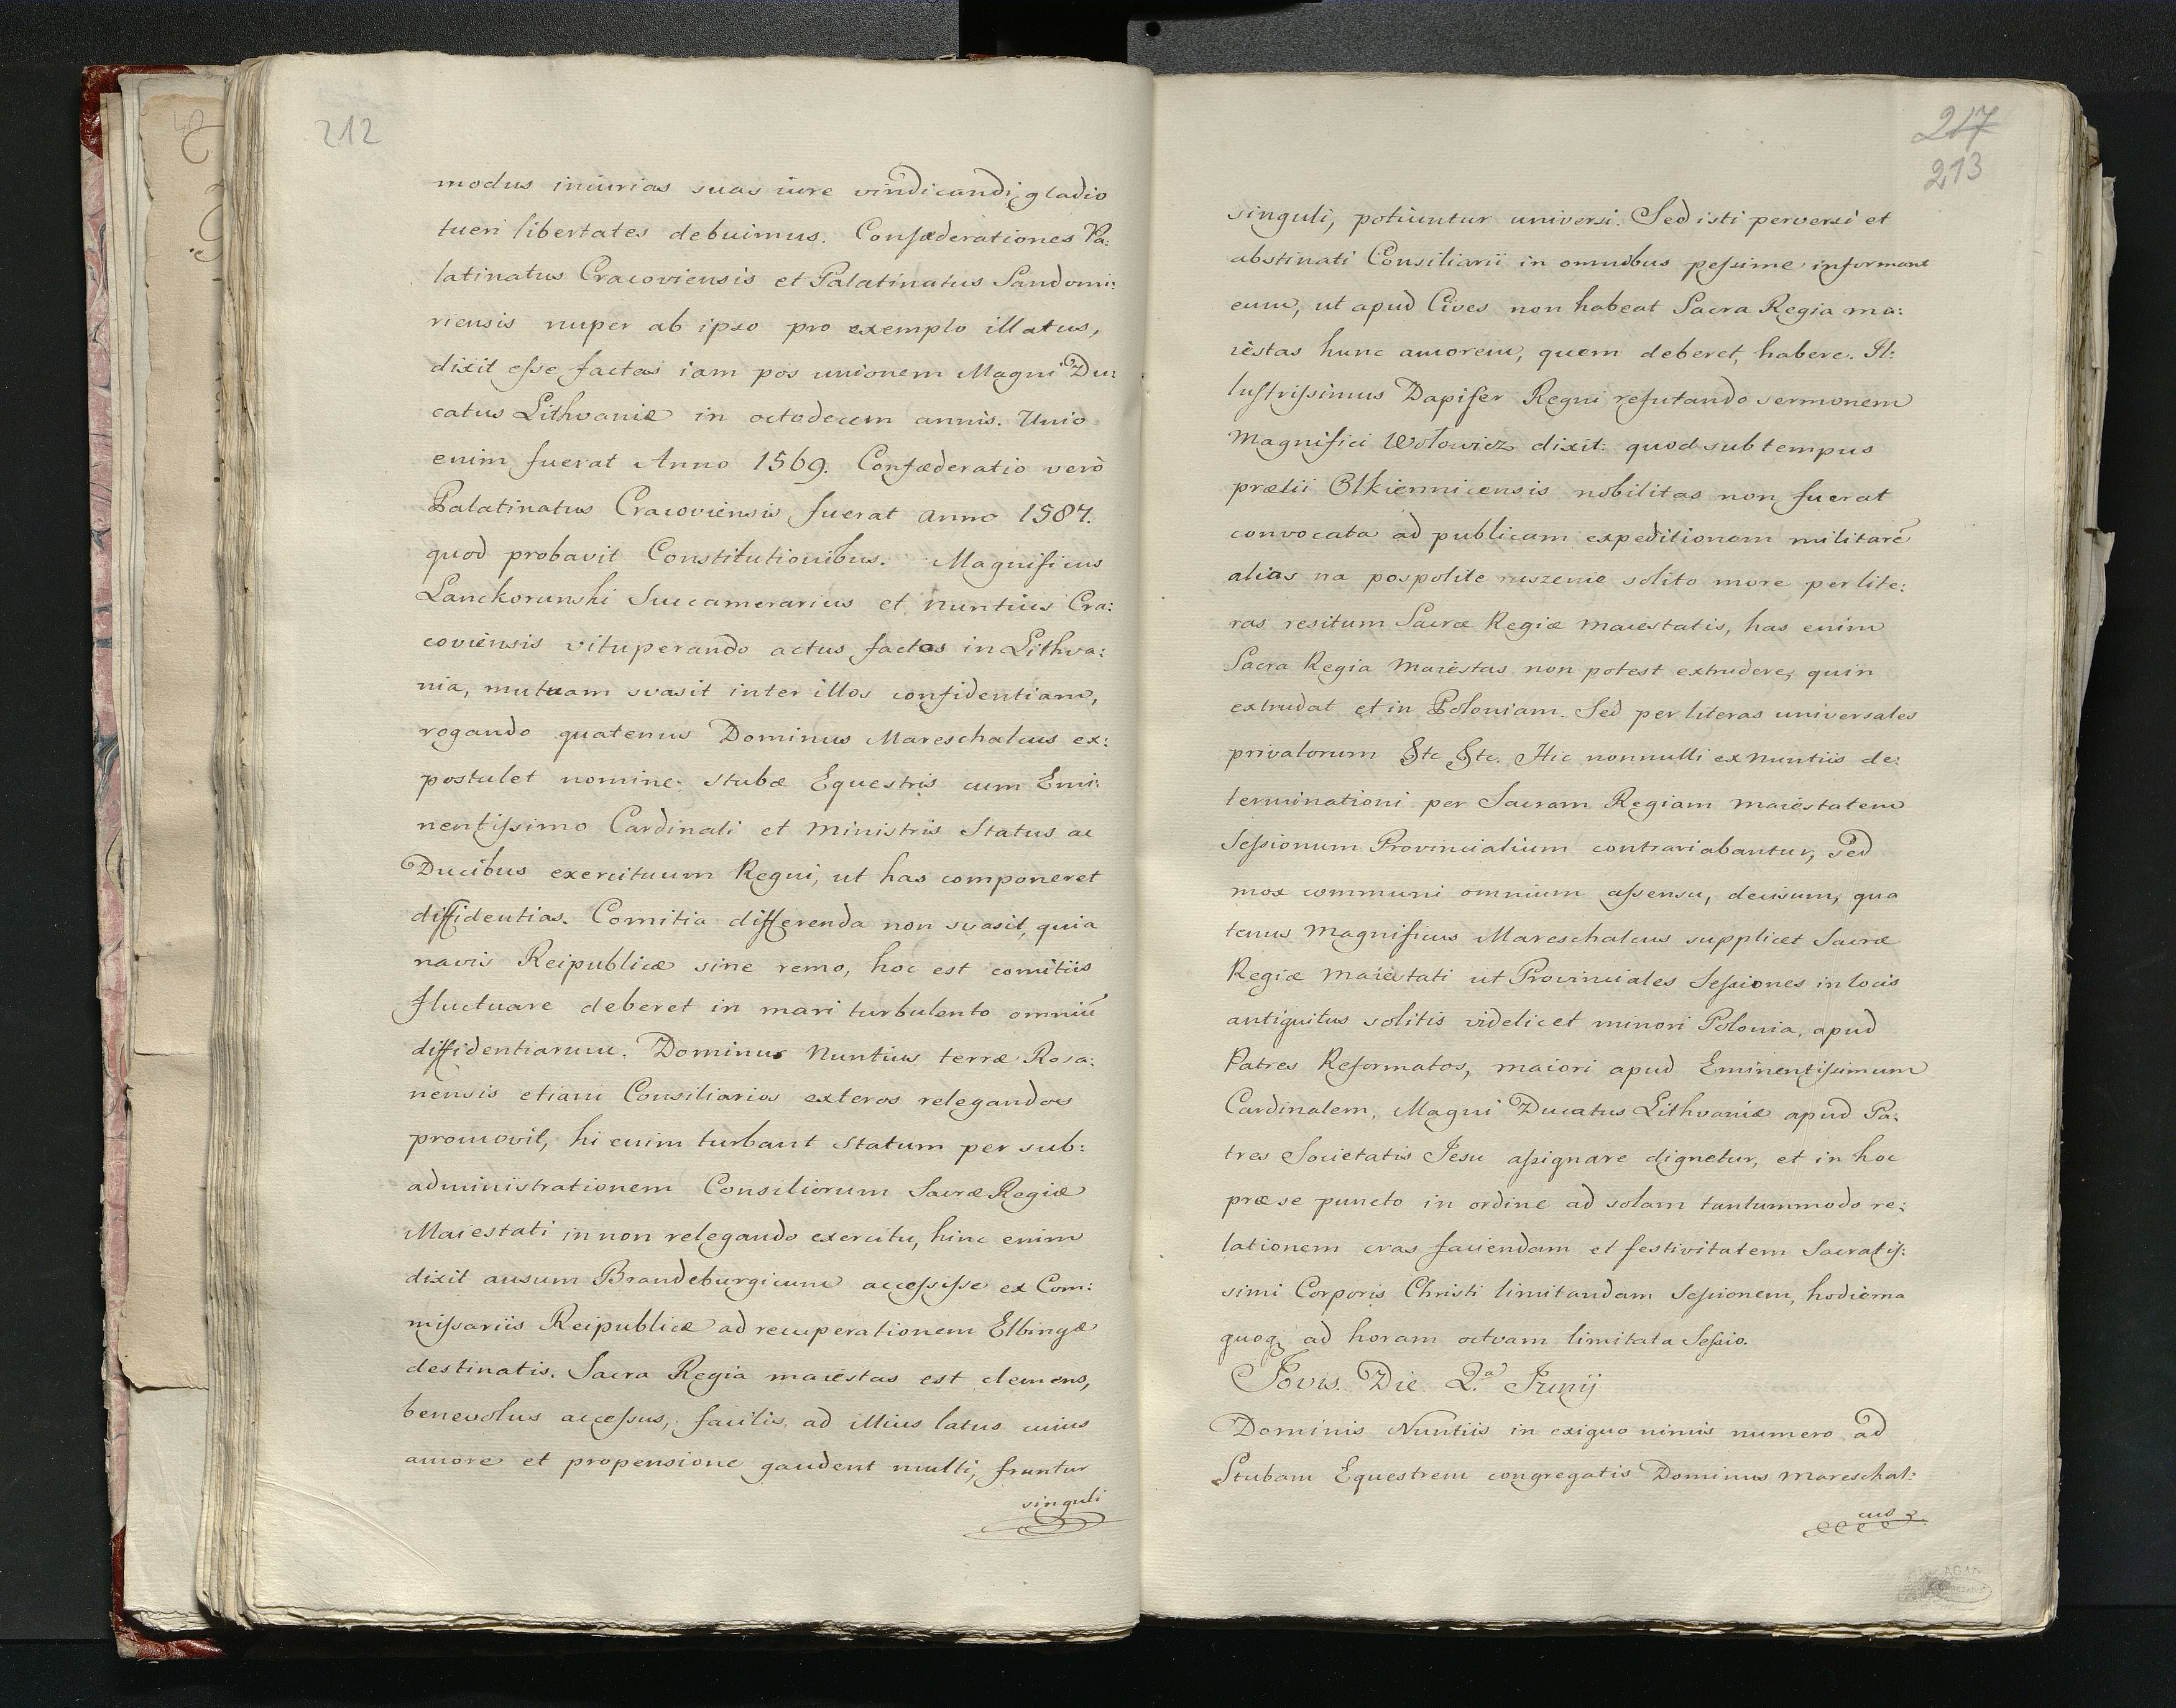 212
modus iniurias suas iure vindicandi, gladio
tueri libertates debuimus. Confæderationes Pa:
latinatus Cracoviensis et Palatinatus Sandomi:
riensis nuper ab ipso pro exemplo illatus,
dixit esse factas iam pos unionem Magni Du:
catus Lithvaniæ in octodecem annis. Unio
enim fuerat Anno 1569. Confæderatio verò
Palatinatus Cracoviensis fuerat anno 1587.
quod probavit Constitutionibus. Magnificus
Lanckorunski Succamerarius et nuntius Cra:
coviensis vituperando actus factos in Lithva:
nia, mutuam svasit inter illos confidentiam,
rogando quatenus Dominus Mareschalcus ex:
postulet nomine stubæ Equestris cum Emi:
nentissimo Cardinali et Ministris Status ac
Ducibus exercituum Regni, ut has componeret
diffidentias. Comitia differenda non svasit, quia
navis Reipublicæ sine remo, hoc est comitiis
fluctuare deberet in mari turbulento omniū
diffidentiarum. Dominus Nuntius terræ Rosa:
nensis etiam Consiliarios exteros relegandos
promovit, hi enim turbant statum per sub:
administrationem Consiliorum Sacræ Regiæ
Maiestati in non relegando exercitu, hinc enim
dixit ausum Brandeburgicum accessisse ex Com:
missariis Reipublicæ ad recuperationem Elbingæ
destinatis. Sacra Regia maiestas est clemens,
benevolus accessus, facilis ad illius latus cuius
amore et propensione gaudent multi, fruntur
singuli
217
213
singuli, potiuntur universi. Sed isti perversi et
abstinati Consiliarii in omnibus pessime informant
eum, ut apud Cives non habeat Sacra Regia ma:
iestas hunc amorem, quem deberet, habere. Il:
lustrissimus Dapifer Regni refutando sermonem
Magnifici Wołowicz dixit: quod sub tempus
prælii Olkiennicensis nobilitas non fuerat
convocata ad publicam expeditionem militarē
alias na pospolite ruszenie solito more per lite:
ras resitum Sacræ Regiæ Maiestatis, has enim
Sacra Regia Maiestas non potest extrudere, quin
extrudat et in Poloniam. Sed per literas universales
privatorum &tc &tc. Hic nonnulli ex Nuntiis de:
terminationi per Sacram Regiam Maiestatem
Sessionum Provincialium contrariabantur, sed
mox communi omnium assensu, decisum, qua
tenus Magnificus Mareschalcus supplicet Sacræ
Regiæ Maiestati ut Provinciales Sessiones in locis
antiquitus solitis videlicet minori Polonia, apud
Patres Reformatos, maiori apud Eminentissimum
Cardinalem, Magni Ducatus Lithvaniæ apud Pa:
tres Societatis Jesu assignare dignetur, et in hoc
præse puncto in ordine ad solam tantummodo re:
lationem cras faciendam et festivitatem Sacratis:
simi Corporis Christi limitandam Sessionem, hodierna
quoq ad horam octvam limitata Sessio.
Jovis. Die 2.a Junij
Dominis Nuntiis in exiguo nimis numero ad
Stubam Equestrem congregatis Dominus Mareschal:
cus